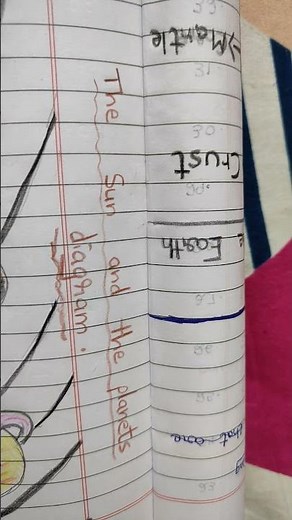 The Sun and the planets
diagram.
→) Mantle
Crust
Earth
that are